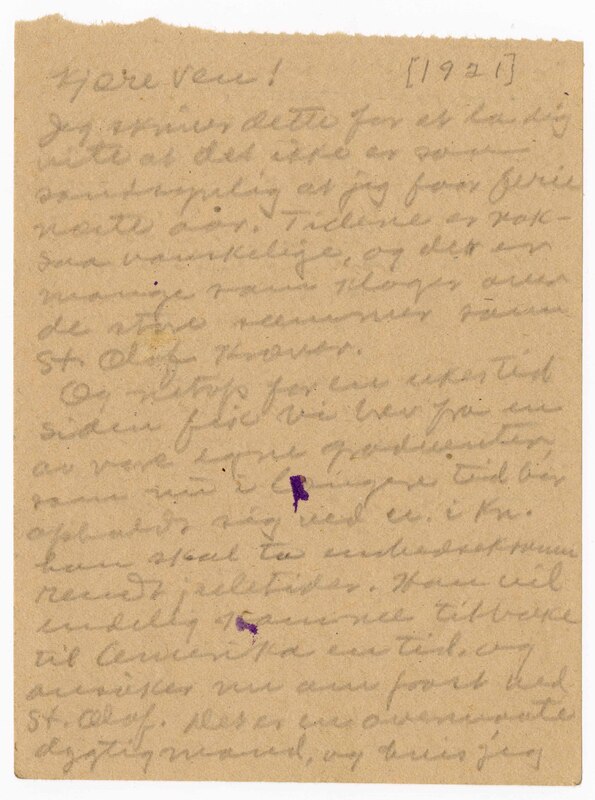 Kjære ven! [1921]
Jeg skriver dette for at la dig
vite at det ikke er saa
sandsynlig at jeg faar ferie
næste aar. Tidene er nok-
saa vanskelige, og der er
mange som klager over
de store summer som
St. Olaf kræver.
Og netop for en ukes tid
siden fik vi brev fra en
av vore egne graduenter,
som nu i længere tid har
opholdt sig ved u. i Kr.
han skal ta embedseksamen
rundt juletider. Han vil
endelig komme tilbake
til Amerika en tid, og
ansøker nu om post ved
St. Olaf. Det er en overmaate
dygtig mand, og hvis jeg